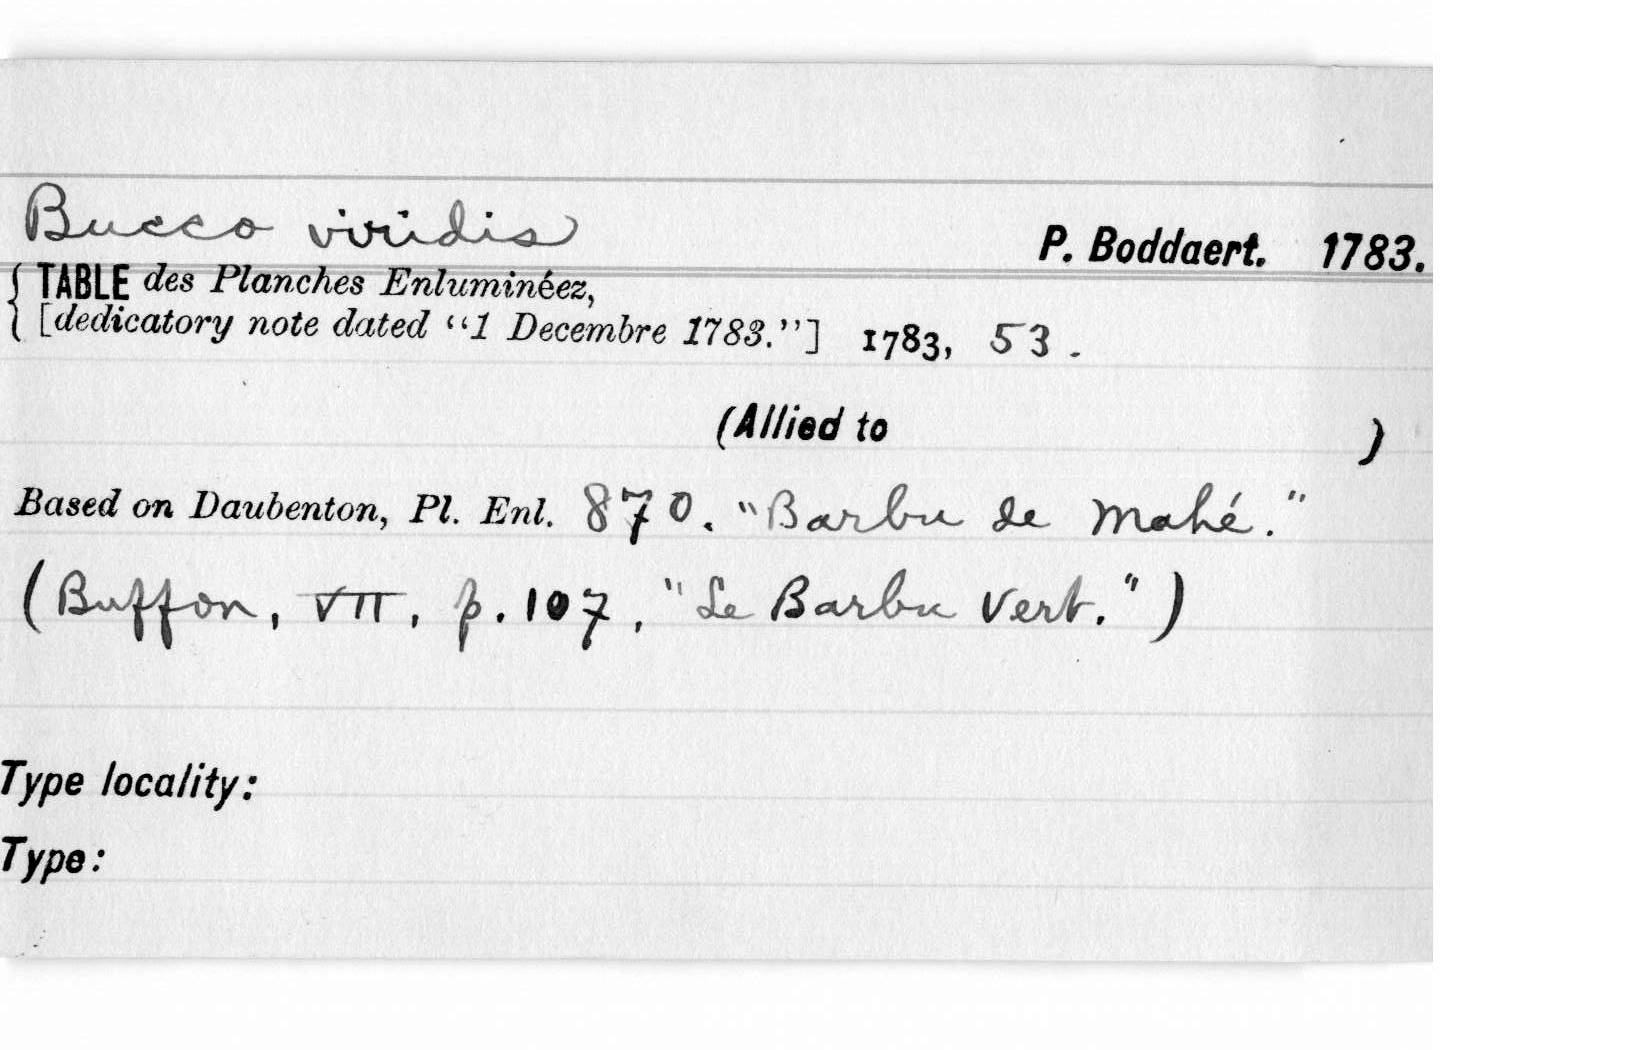 Bucco viridis P. Boddaert. 1783.
{ TABLE des Planches Enluminéez,
{ [dedicatory note dated “1 Decembre 1783.”] 1783, 53.
(Allied to )
Based on Daubenton, Pl. Enl. 870. "Barbu de Mahé."
(Buffon, VII, p. 107, "Le Barbu Vert.")
Type locality:
Type: